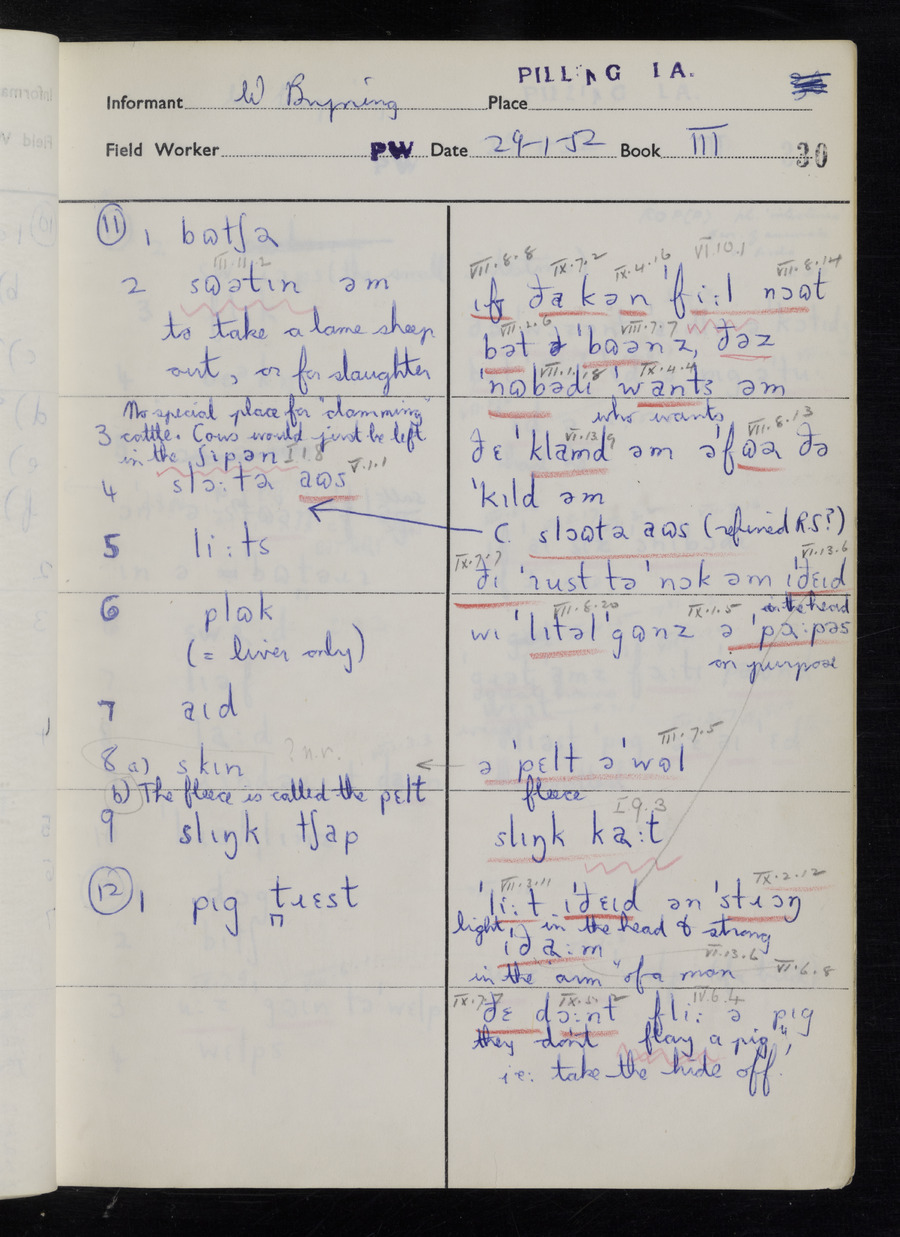 PILLING LA.
Informant W Bryning Place
Field Worker PW Date 29-1-52 Book III 30
⑪ 1 bɷtʃə
III.11.2
2 sɷətɪn əm
to take a lame sheep
out, or for slaughter
No special place for "clamming"
3 cattle. Cows would just be left
in the ʃɪpən I 1.8
4 slɔ:tə aɷs V.1.1
5 li:ts
6 plɷk
(= liver only)
7 aɪd
8 a) skɪn ?n.r.
b) The fleece is called the pɛlt
9 slɪŋk tʃap
⑫ 1 pɪg tɹɛst
VII.8.8 IX.7.2 IX.4.16 VI.10.1 VII.8.14
ɪf ðə kən ˈfi:l nɔɷt
VII.2.6 VIII.7.7
bət ə ˈbɷənz, ðəz
VII.1.18 IX.4.4
ˈnɷbədi ˈwants əm
who wants
VI.13.9 VII.8.13
ðɛ ˈklamd əm əˈfɷə ðə
ˈkɪld əm
C. slɔɷtə aɷs (refined R.S?)
IX.7.7 VI.13.6
ðɪ ˈɹust tə ˈnɔk əm ɪˈðɛɪd
in the head
VII.8.20 IX.1.5
wɪ ˈlɪtəl ˈgɷnz ə ˈpə:pəs
on purpose
III.7.5
ə ˈpɛlt ə ˈwɷl
fleece
I 9.3
slɪŋk ka:t
VII.3.11 IX.2.12
ˈli:t ɪˈðɛɪd ən ˈstɹɔŋ
light in the head & strong
ɪðə:m
in the arm" of a man
VI.13.6 VI.6.8
IX.7.7 IV.6.4
ðɛ dɔ:nt fli: ə pɪg
they don't flay a pig",
ie: take the hide off.